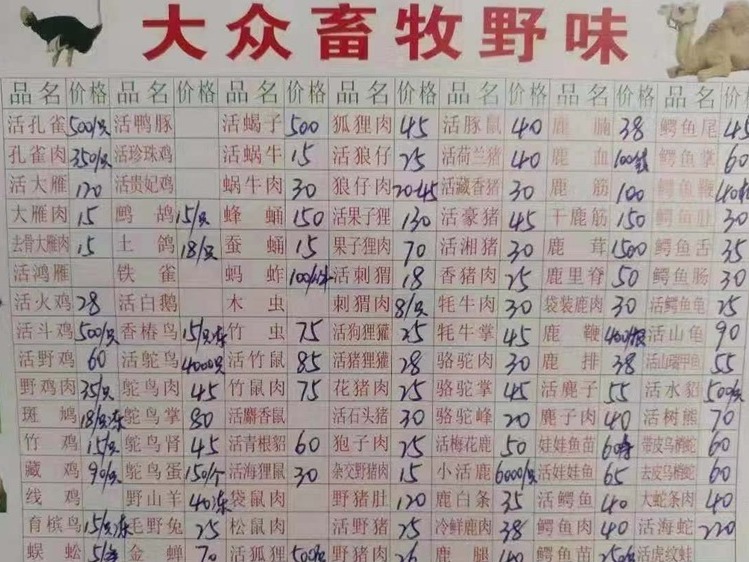 大众畜牧野味
品名 价格 品名 价格 品名 价格 品名 价格 品名 价格 品名 价格 品名 价格
活孔雀 500/只 活鸭豚 活蝎子 500 狐狸肉 45 活豚鼠 40 鹿腩 38 鳄鱼尾
孔雀肉 350/只 活珍珠鸡 活蜗牛 15 活狼仔 25 活荷兰猪 40 鹿血 鳄鱼掌 60
活大雁 120 活贵妃鸡 蜗牛肉 30 狼仔肉 20-45 活藏香猪 30 鹿筋 100 鳄鱼鞭
大雁肉 15 鹧鸪 15/只 蜂蛹 150 活果子狸 130 活豪猪 45 干鹿筋 150 鳄鱼肚 30
去骨大雁肉 15 土鸽 18/只 蚕蛹 15 果子狸肉 70 活湘猪 30 鹿茸 1500 鳄鱼舌 35
活鸿雁 铁雀 蚂蚱 活刺猬 18 香猪肉 25 鹿里脊 50 鳄鱼肠 30
活火鸡 28 活白鹅 木虫 刺猬肉 8/只 牦牛肉 30 袋装鹿肉 30 活鳄鱼龟 25
活斗鸡 500/只 香椿鸟 15/只冻 竹虫 75 活狗狸獾 25 牦牛掌 45 鹿鞭 活山龟 90
活野鸡 60 活鸵鸟 4000只 活竹鼠 85 活猪狸獾 28 骆驼肉 30 鹿排 38 55
野鸡肉 35/只 鸵鸟肉 45 竹鼠肉 75 花猪肉 25 骆驼掌 45 活鹿子 55 活水貂 500/只
斑鸠 18/只冻 鸵鸟掌 80 活麝香鼠 活石头猪 30 骆驼峰 20 鹿子肉 40 活树熊 70
竹鸡 15/只 鸵鸟肾 45 活青根貂 60 狍子肉 25 活梅花鹿 50 娃娃鱼苗 带皮乌梢蛇 60
藏鸡 90/只 鸵鸟蛋 150/个 活海狸鼠 30 杂交野猪肉 15 小活鹿 6000/只 活娃娃鱼 65 去皮乌梢蛇 60
线鸡 野山羊 40冻 袋鼠肉 野猪肚 120 鹿白条 35 活鳄鱼 40 大蛇条肉 40
育槟鸟 15/只冻 毛野兔 25 松鼠肉 活野猪 25 冷鲜鹿肉 38 鳄鱼肉 40 活海蛇 220
蜈蚣 金蝉 70 活狐狸 野猪肉 鹿腿 鳄鱼苗 活虎纹蛙